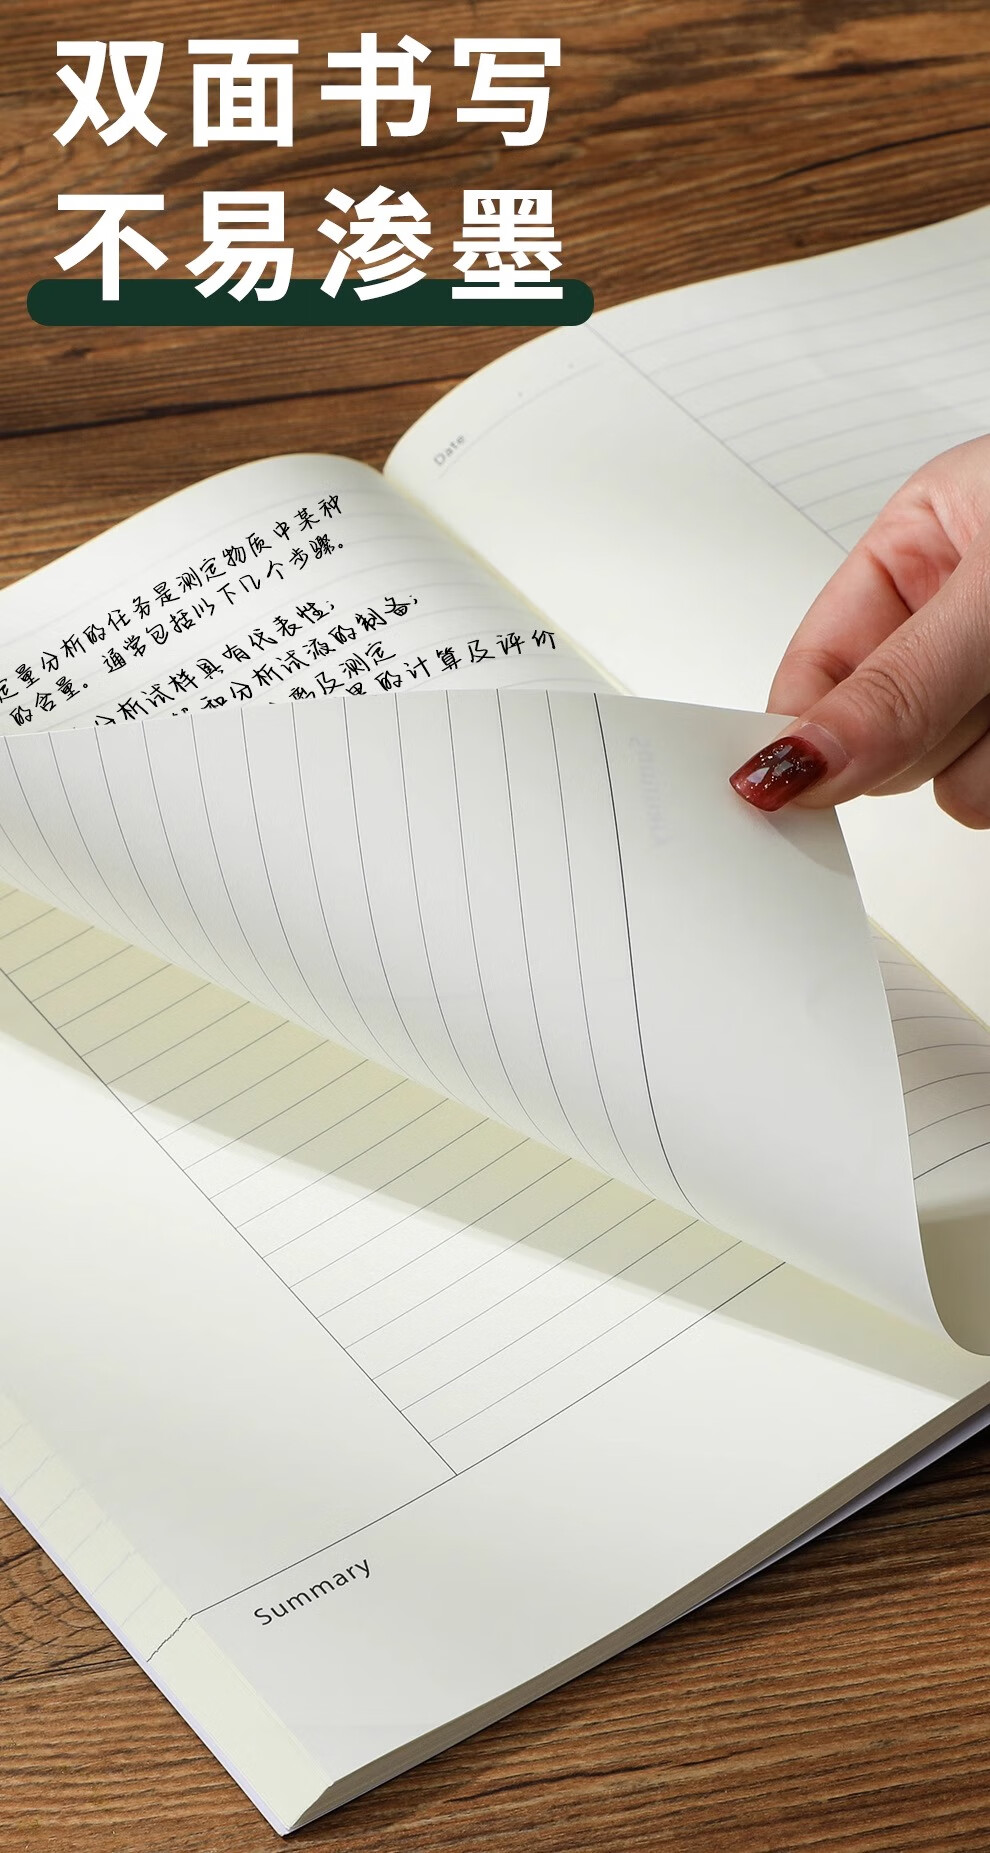 双面书写
不易渗墨
Date
定量分析的任务是测定物质中某种
的含量。通常包括以下几个步骤。
分析试样具有代表性;
和分析试液的制备;
离及测定
果的计算及评价
Summary